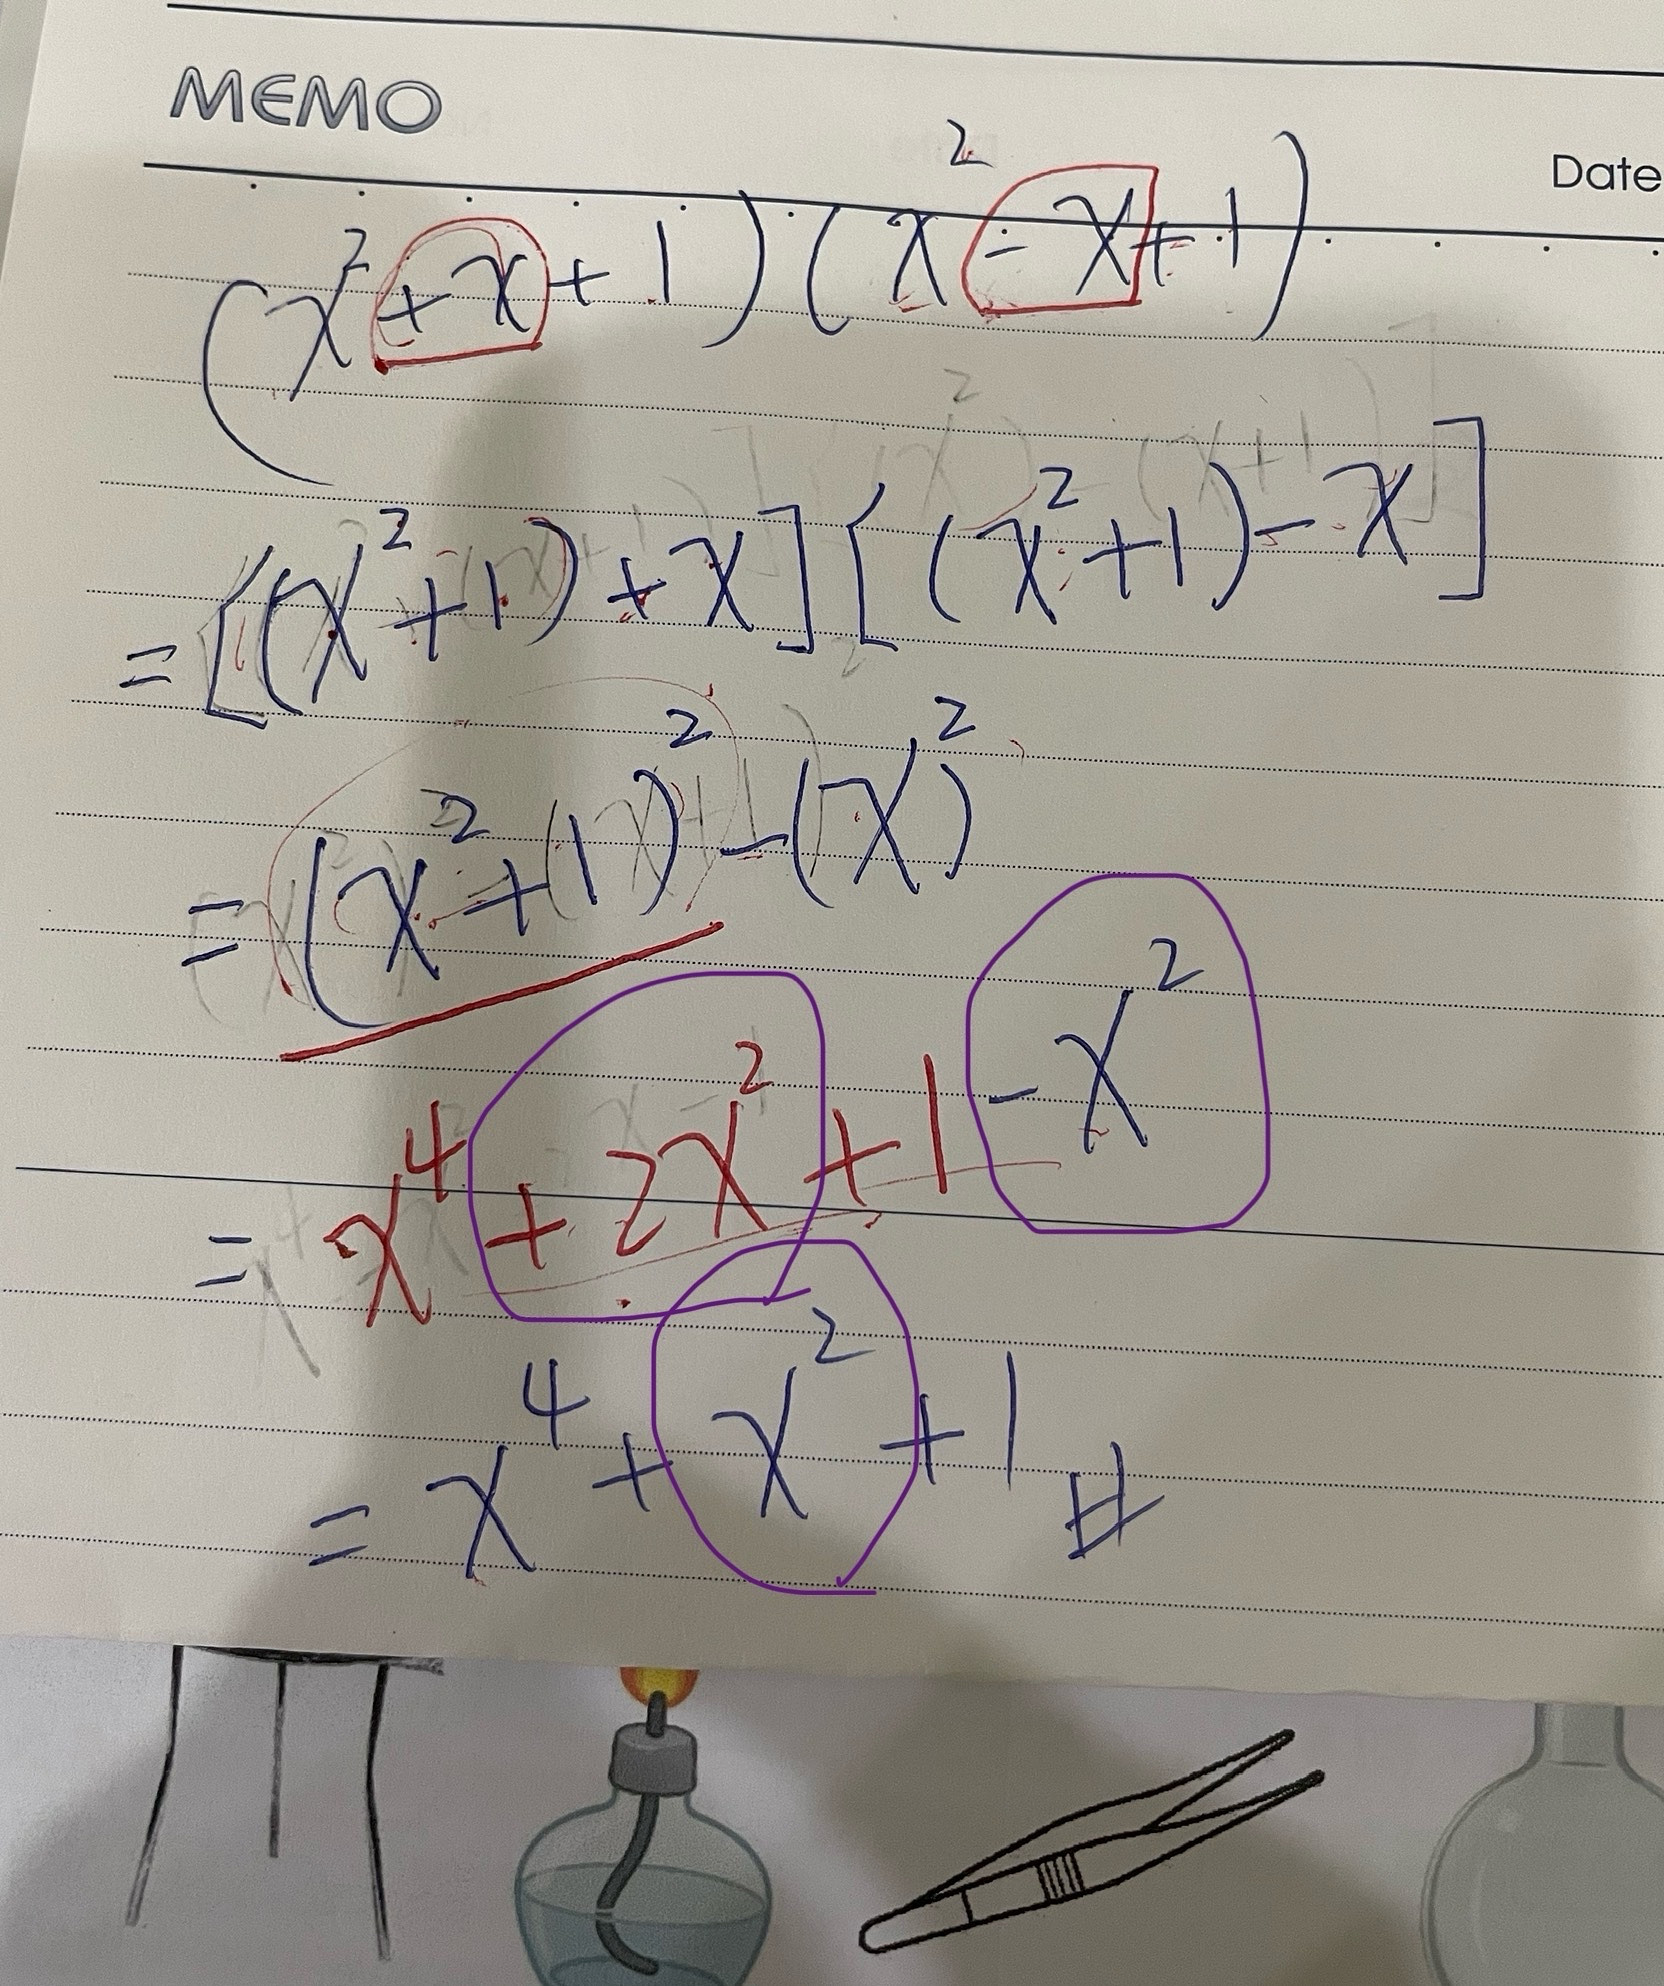 MEMO
Date
(x² + x + 1)(x² - x + 1)
= [(x² + 1) + x][(x² + 1) - x]
= (x² + 1)² - (x)²
= x⁴ + 2x² + 1 - x²
= x⁴ + x² + 1 #